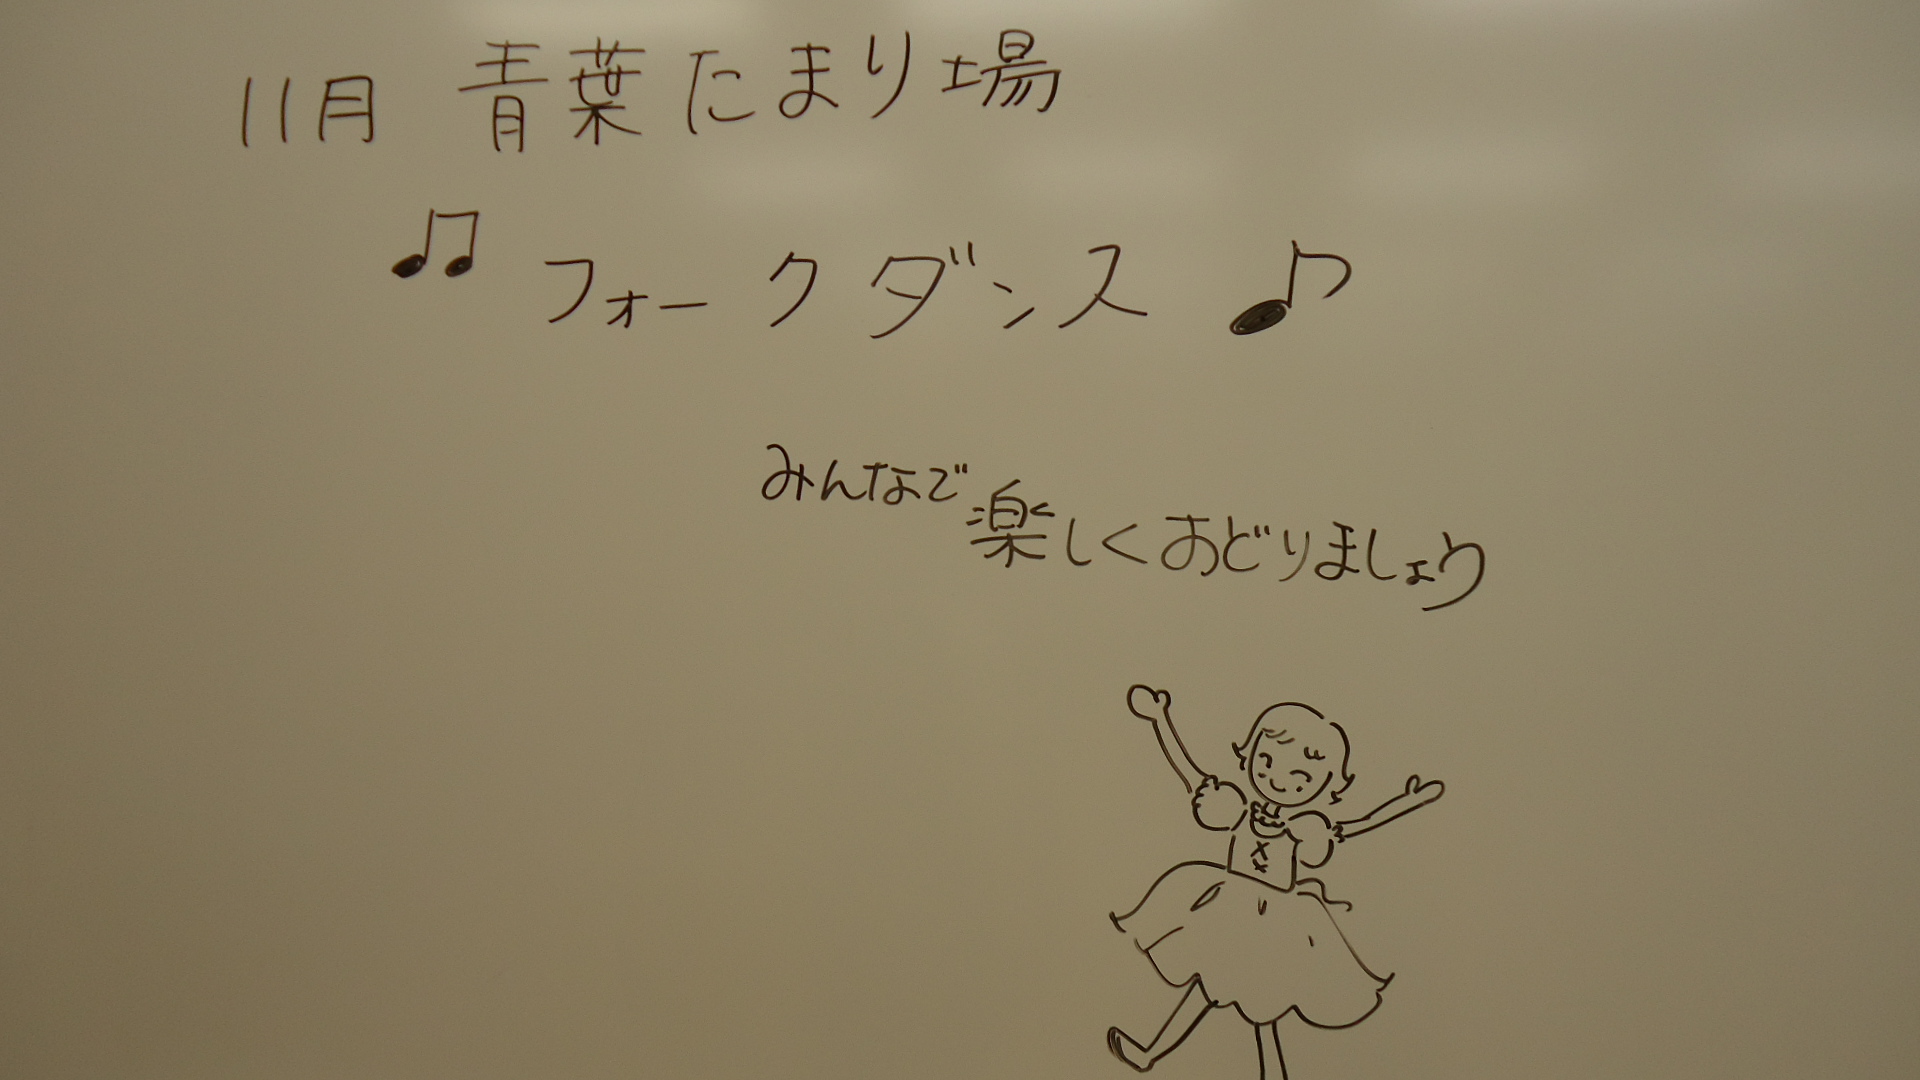 11月 青葉たまり場
♫ フォークダンス ♪
みんなで楽しくおどりましょう